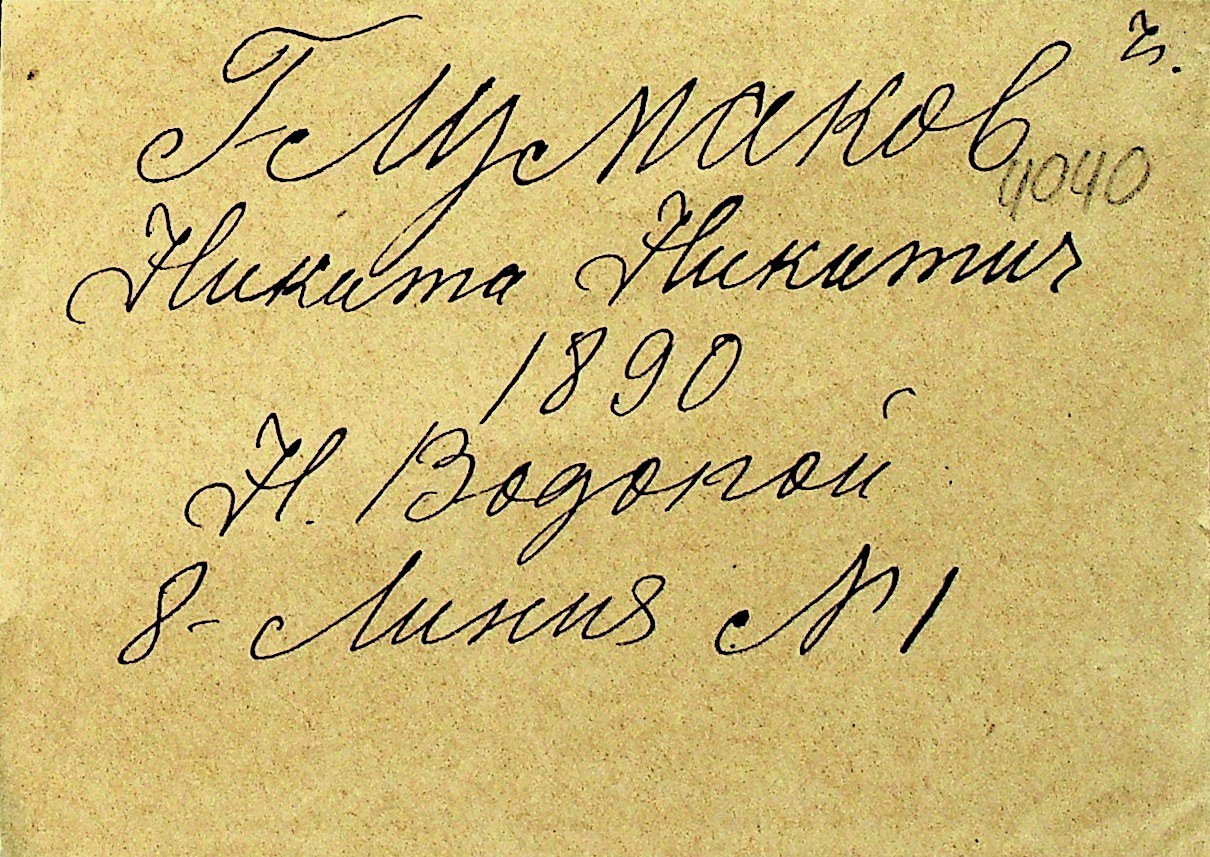 Глумаков
4040
Никита Никитич
1890
Н. Водопой
8- Линия № 1